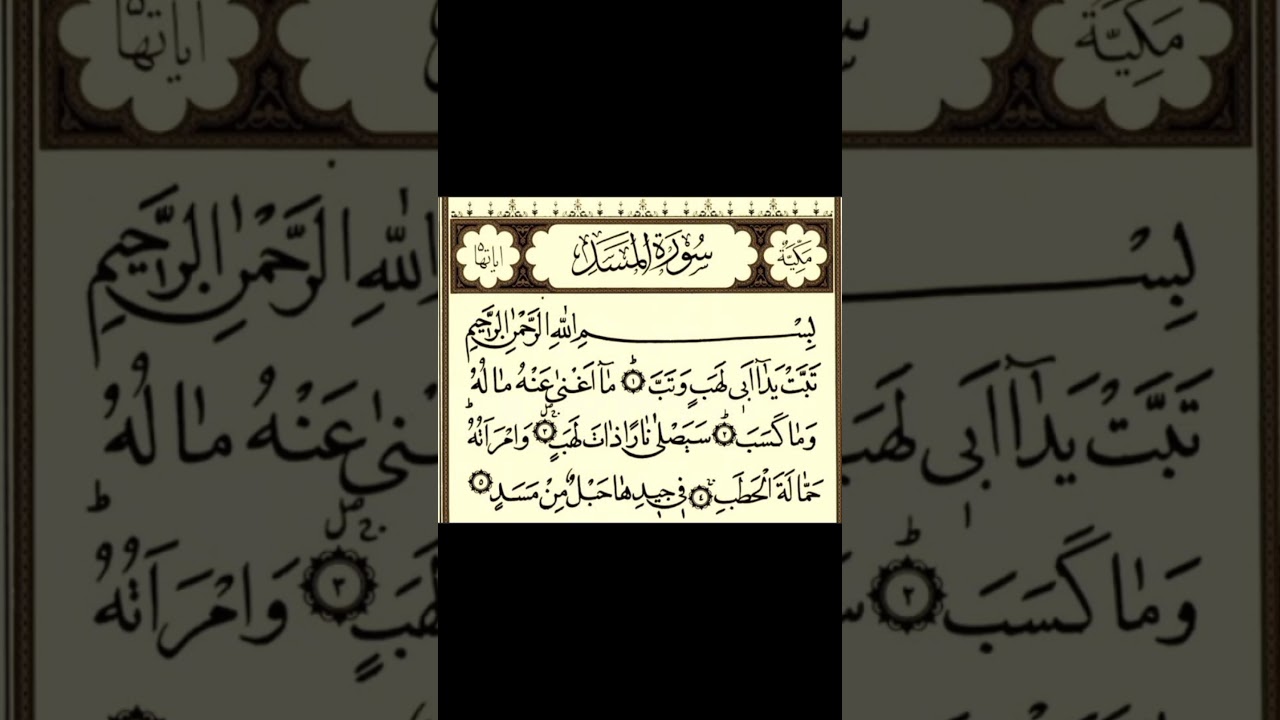 مَكِّيَّةٌ سُوْرَةُ الْمَسَدِ اٰيَاتُهَا ٥
بِسْمِ اللّٰهِ الرَّحْمٰنِ الرَّحِيْمِ
تَبَّتْ يَدَآ اَبِيْ لَهَبٍ وَّتَبَّ ؕ﴿۱﴾ مَآ اَغْنٰى عَنْهُ مَا لُهٗ
وَمَا كَسَبَ ؕ﴿۲﴾ سَيَصْلٰى نَارًا ذَاتَ لَهَبٍ ۚۖ﴿۳﴾ وَّامْرَاَتُهٗ ؕ
حَمَّا لَةَ الْحَطَبِ ۚ﴿۴﴾ فِيْ جِيْدِهَا حَبْلٌ مِّنْ مَّسَدٍ ﴿۵﴾